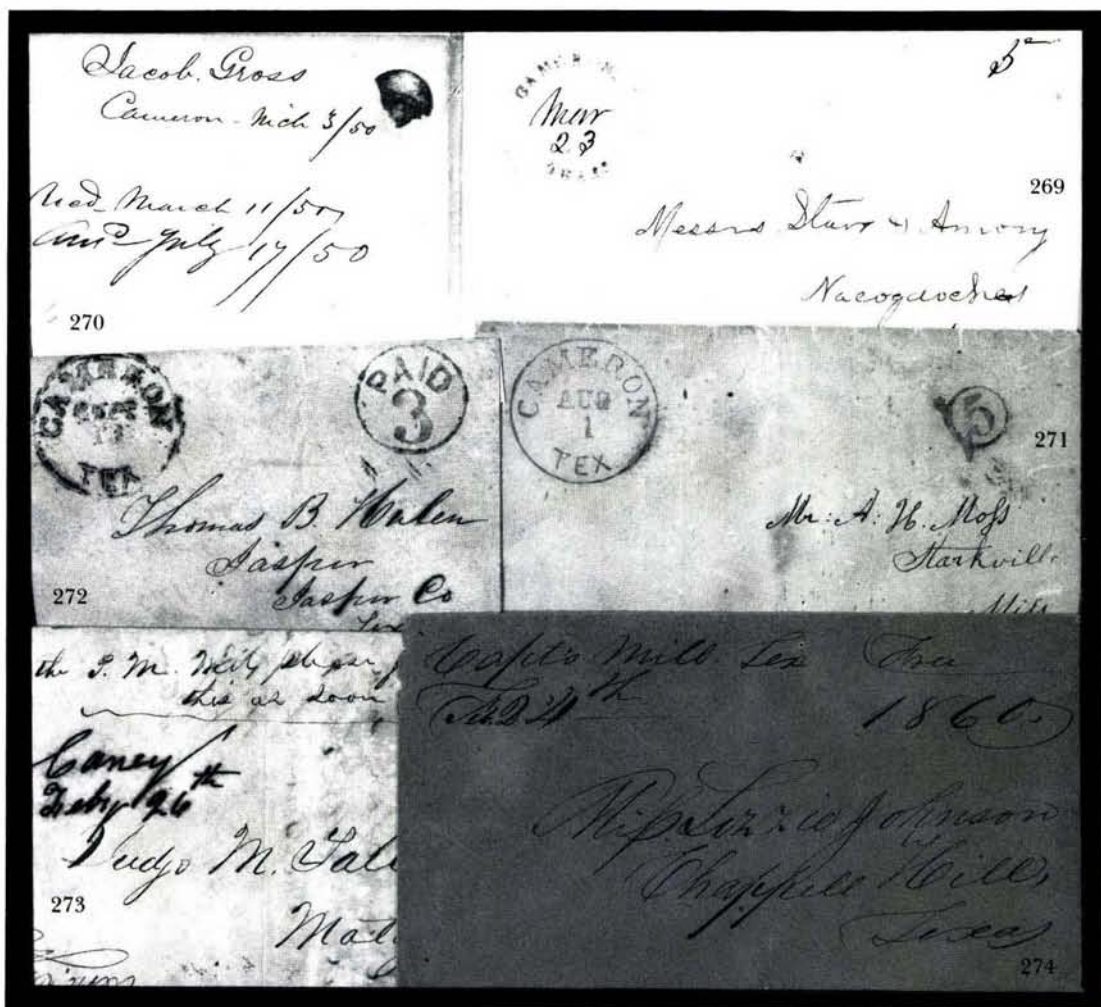 Jacob. Gross
Cameron - Mich 3/50
March 11/50
July 17/50
270
5
CAMERON
23
TEXAS
269
Messrs Starr & Amory
Nacogdoches
CAMERON
TEX
PAID
3
Thomas B. Hulen
Jasper
Jasper Co
272
CAMERON
AUG
1
TEX
5
271
Mr. A. H. Moss
Starkville
Miss
the P. M. will please
this as soon
Caney
Feby 26th
Judge M. Tal
Mat
273
Capt's Mill. Tex Free
24th 1860.
Miss Lizzie Johnson
Chappell Hill,
Texas
274